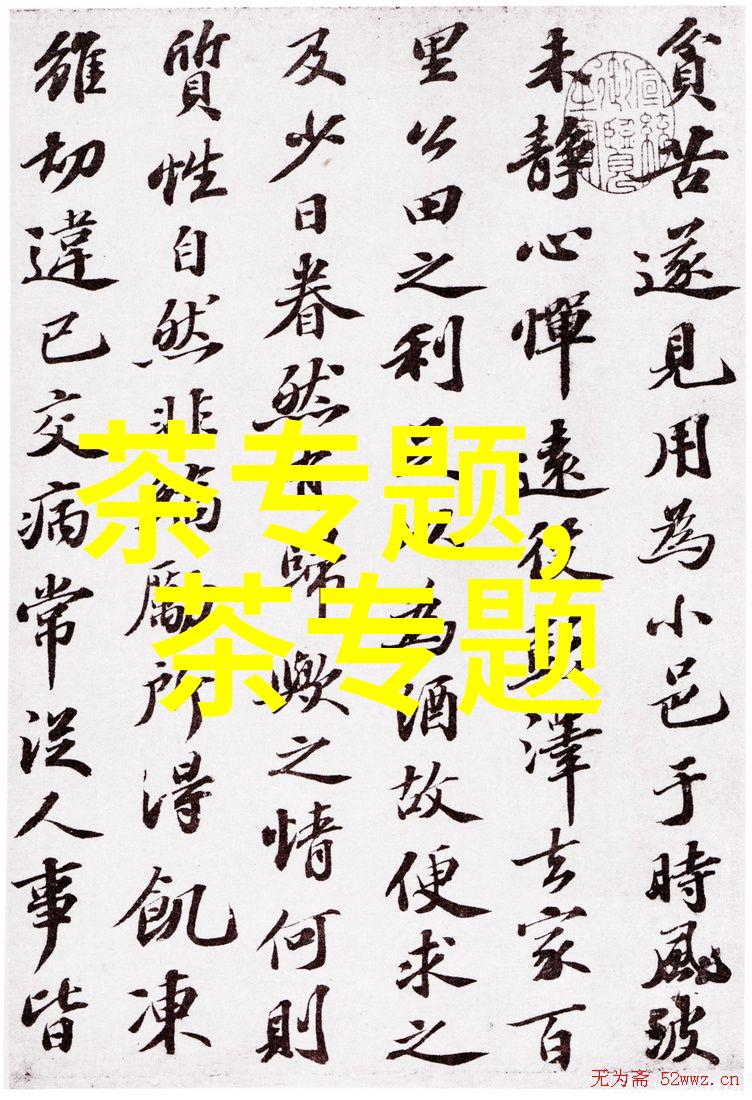 貧苦遂見用為小邑于時風波
未靜心憚遠役彭澤去家百
里公田之利足以為酒故便求之
及少日眷然有歸歟之情何則
質性自然非矯勵所得飢凍
雖切違己交病常從人事皆
茶专题，
茶专题
无为斋 52wwz.cn